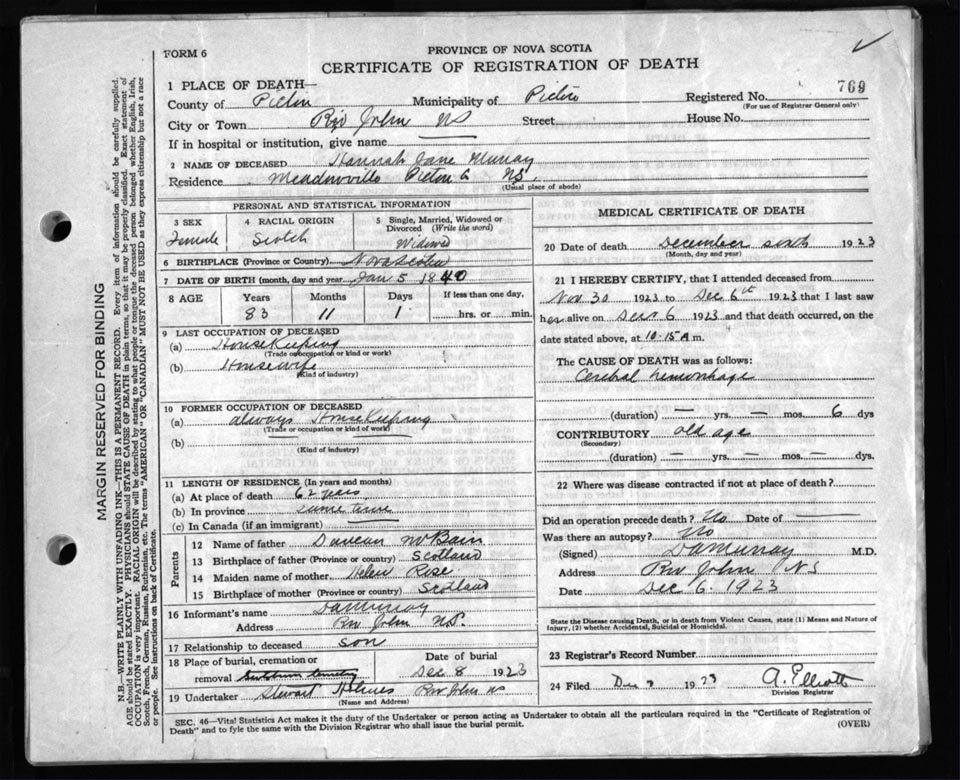 FORM 6
PROVINCE OF NOVA SCOTIA
CERTIFICATE OF REGISTRATION OF DEATH
1 PLACE OF DEATH—
Registered No. 769
County of Pictou Municipality of Pictou (For use of Registrar General only)
City or Town Riv John NS Street House No.
If in hospital or institution, give name
2 NAME OF DECEASED Hannah Jane Murray
Residence Meadowville Pictou Co NS.
(Usual place of abode)
PERSONAL AND STATISTICAL INFORMATION
3 SEX Female
4 RACIAL ORIGIN Scotch
5 Single, Married, Widowed or Divorced (Write the word) Widowed
6 BIRTHPLACE (Province or Country) Nova Scotia
7 DATE OF BIRTH (month, day and year) Jan 5 1840
8 AGE Years Months Days If less than one day,
83 11 1 hrs. or min.
9 LAST OCCUPATION OF DECEASED
(a) HouseKeeping
(Trade or occupation or kind of work)
(b) Housewife
(Kind of industry)
10 FORMER OCCUPATION OF DECEASED
(a) always HouseKeeping
(Trade or occupation or kind of work)
(b)
(Kind of industry)
11 LENGTH OF RESIDENCE (In years and months)
(a) At place of death 62 years
(b) In province same time
(c) In Canada (if an immigrant)
Parents
12 Name of father Duncan McBain
13 Birthplace of father (Province or country) Scotland
14 Maiden name of mother Helen Rose
15 Birthplace of mother (Province or country) Scotland
16 Informant's name DaMurray
Address Riv John NS.
17 Relationship to deceased son
18 Place of burial, cremation or removal Cemetery
Date of burial
Dec 8 1923
19 Undertaker Stewart Holmes Riv John NS
(Name and Address)
MEDICAL CERTIFICATE OF DEATH
20 Date of death December sixth 1923
(Month, day and year)
21 I HEREBY CERTIFY, that I attended deceased from
Nov. 30 1923 to Dec 6th 1923 that I last saw
her alive on Dec 6 1923 and that death occurred, on
the date stated above, at 10.15 A m.
The CAUSE OF DEATH was as follows:
Cerebral hemorrhage
(duration) — yrs. — mos. 6 dys
CONTRIBUTORY old age
(Secondary)
(duration) — yrs. — mos. — dys.
22 Where was disease contracted if not at place of death?
Did an operation precede death? No Date of —
Was there an autopsy? No
(Signed) DaMurray M.D.
Address Riv John NS
Date Dec 6. 1923
State the Disease causing Death, or in death from Violent Causes, state (1) Means and Nature of
Injury, (2) whether Accidental, Suicidal or Homicidal.
23 Registrar's Record Number
24 Filed Dec 1923 A. Elliott
Division Registrar
SEC. 46—Vital Statistics Act makes it the duty of the Undertaker or person acting as Undertaker to obtain all the particulars required in the "Certificate of Registration of
Death" and to fyle the same with the Division Registrar who shall issue the burial permit. (OVER)
MARGIN RESERVED FOR BINDING
N.B.—WRITE PLAINLY WITH UNFADING INK—THIS IS A PERMANENT RECORD. Every item of information should be carefully supplied.
AGE should be stated EXACTLY. PHYSICIANS should STATE CAUSE OF DEATH in plain terms, so that it may be properly classified. Exact statement of
OCCUPATION is very important. RACIAL ORIGIN will be described by stating to what people or tongue the deceased person belonged whether English, Irish,
Scotch, French, German, Russian, Ruthenian, etc. The terms "AMERICAN" OR "CANADIAN" MUST NOT BE USED as they express citizenship but not a race
or people. See instructions on back of Certificate.